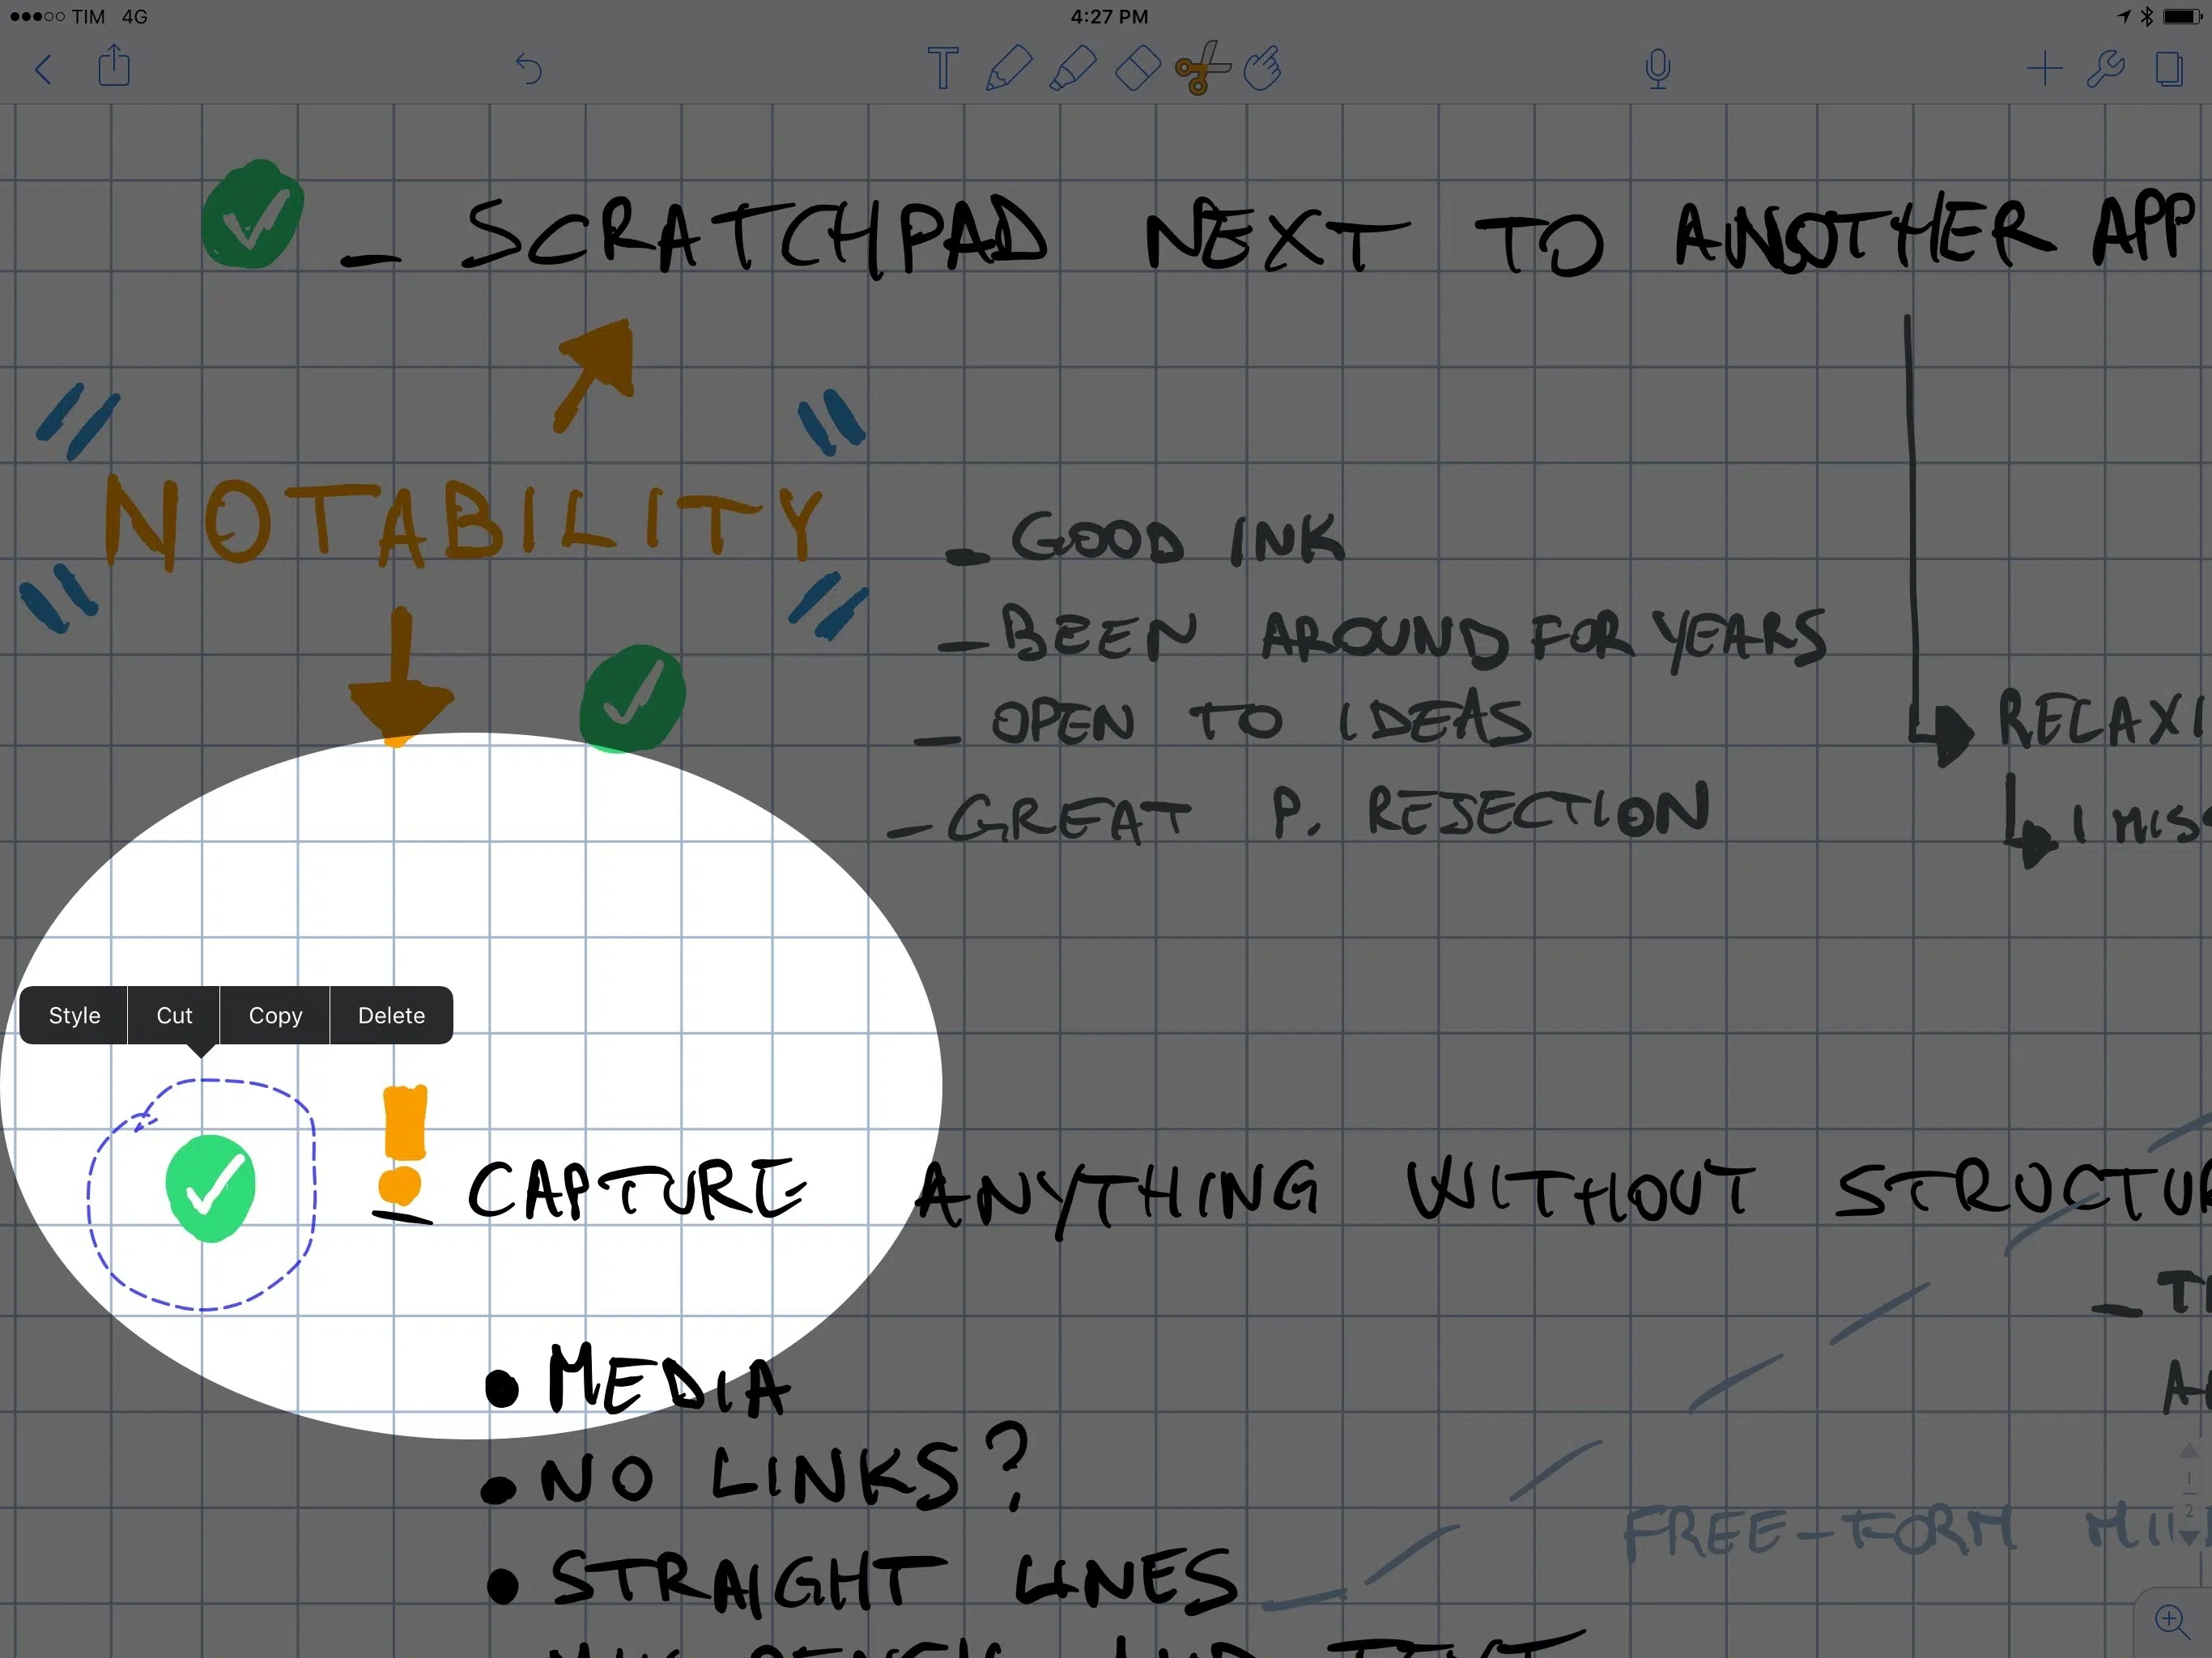 TIM 4G 4:27 PM
_ SCRATCHPAD NEXT TO ANOTHER APP
NOTABILITY
_ GOOD INK
_ BEEN AROUND FOR YEARS
_ OPEN TO IDEAS
RELAXI
_ GREAT P. REJECTION
I MISS
Style Cut Copy Delete
! _ CAPTURE ANYTHING WITHOUT STRUCTUR
• MEDIA
• NO LINKS?
1
2
FREE-FORM
• STRAIGHT LINES